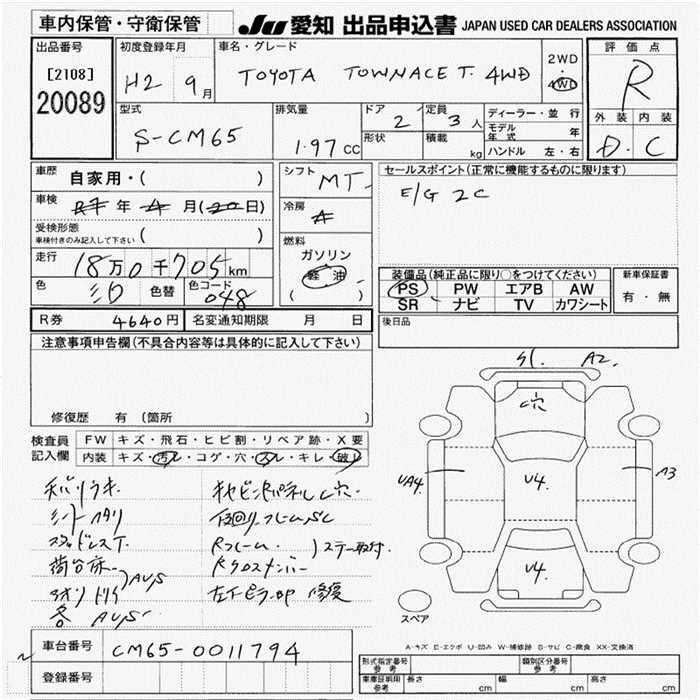 車内保管・守衛保管
JU 愛知 出品申込書 JAPAN USED CAR DEALERS ASSOCIATION
出品番号
[2108]
20089
初度登録年月
H2 9月
車名・グレード
TOYOTA TOWNACE T. 4WD
2WD
4WD
評価点
R
外装 内装
D. C
型式
S-CM65
排気量
1.97 CC
ドア
2
定員
3 人
形状
積載
kg
ディーラー・並行
モデル年式 年
ハンドル 左・右
車歴
自家用・( )
車検
年 月( 日)
受検形態
車検付きのみ記入して下さい
( )
走行
18万0千705km
色
色替
色コード
048
シフト
MT
冷房
燃料
ガソリン
軽油
( )
セールスポイント(正常に機能するものに限ります)
E/G 2C
装備品(純正品に限り○をつけてください)
PS PW エアB AW
SR ナビ TV カワシート
新車保証書
有・無
R券 4640円 名変通知期限 月 日
後日品
注意事項申告欄(不具合内容等は具体的に記入して下さい)
修復歴 有 (箇所
検査員記入欄
FW キズ・飛石・ヒビ割・リペア跡・X要
内装 キズ・汚レ・コゲ・穴・スレ・キレ・破レ
シート
スタッドレスT.
荷台床
各 AUS
Rフレーム
Rクロスメンバー
ステー取付
修復
S1. A2.
C穴
UA4.
U4.
A3
U4.
スペア
A-キズ E-エクボ U-凹み W-補修跡 S-サビ C-腐食 XX-交換済
車台番号 CM65-0011794
登録番号
形式指定番号
参考
類別区分番号
参考
車庫証明用
参考
長さ cm 幅 cm 高さ cm